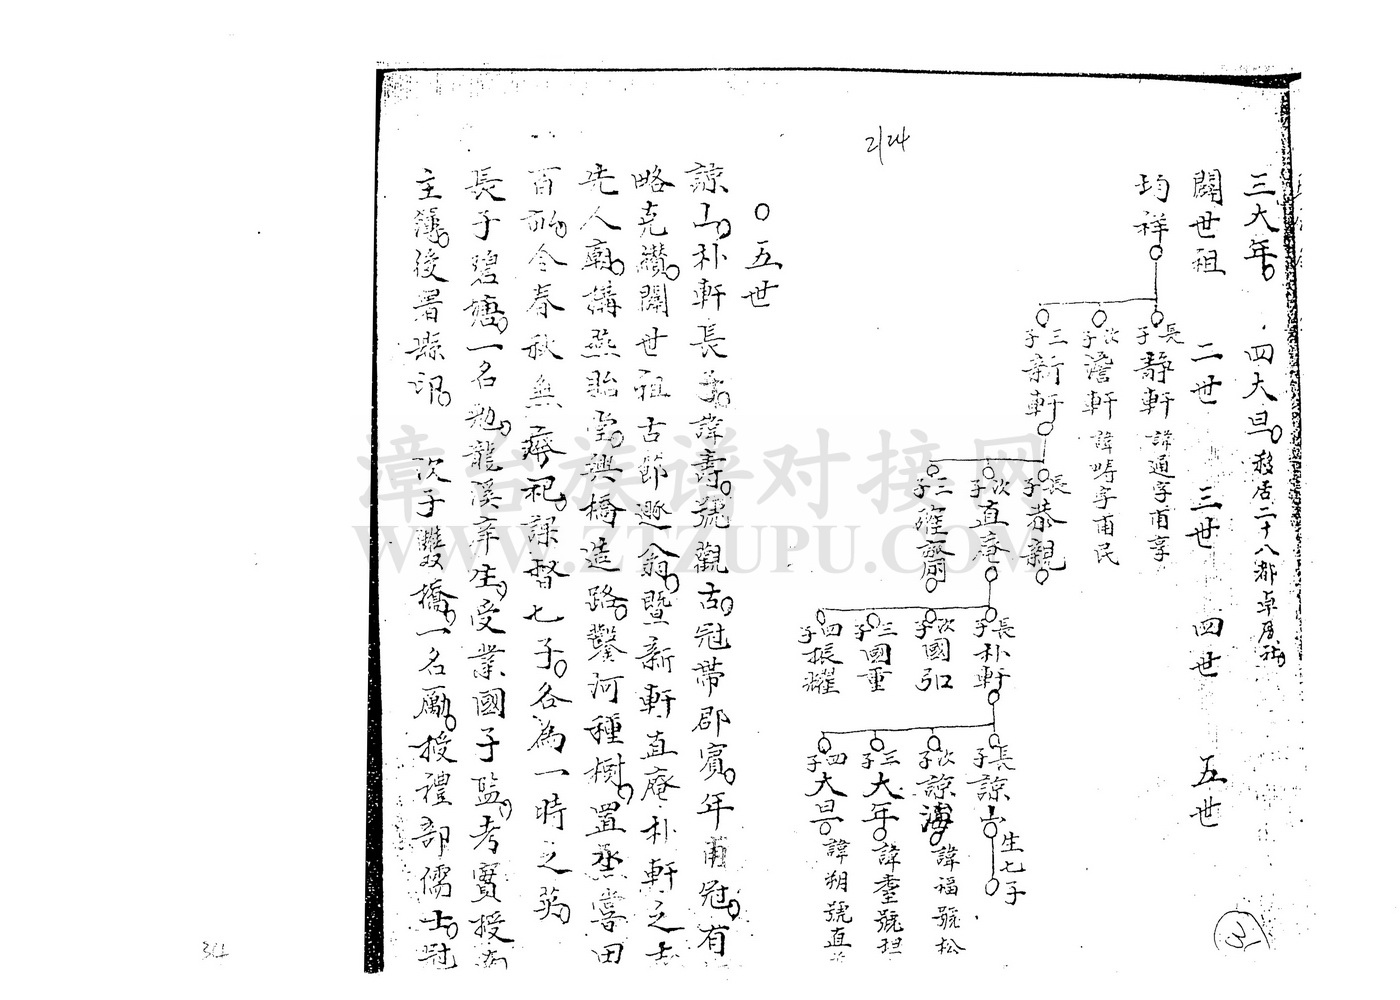 2/24
三大年。四大旦。移居二十八都卓厝社
開世祖 二世 三世 四世 五世
均祥
長子靜軒 諱通字甫亨
次子澹軒 諱時字甫民
三子新軒
長子恭親
次子直庵
三子確齋
長子朴軒
次子國弘
三子國重
四子振耀
長子諒山 生七子
次子諒海 諱福號松
三子大年 諱臺號坦
四子大旦 諱朔號直
五世
諒山。朴軒長子。諱壽。號觀古。冠帶郡賓。年甫冠。有
略克纘。開世祖古節遯翁。暨新軒直庵朴軒之志
先人廟。構燕貽堂。興橋造路。鑿河種樹。置烝嘗田
百畝。令春秋無廢祀。課督七子。各為一時之英。
長子碧塘。一名勉。龍溪庠生。受業國子監。考實授
主簿。後署縣印。 次子雙橋。一名勵。授禮部儒士。冠
漳台族谱对接网
WWW.ZTZUPU.COM
34